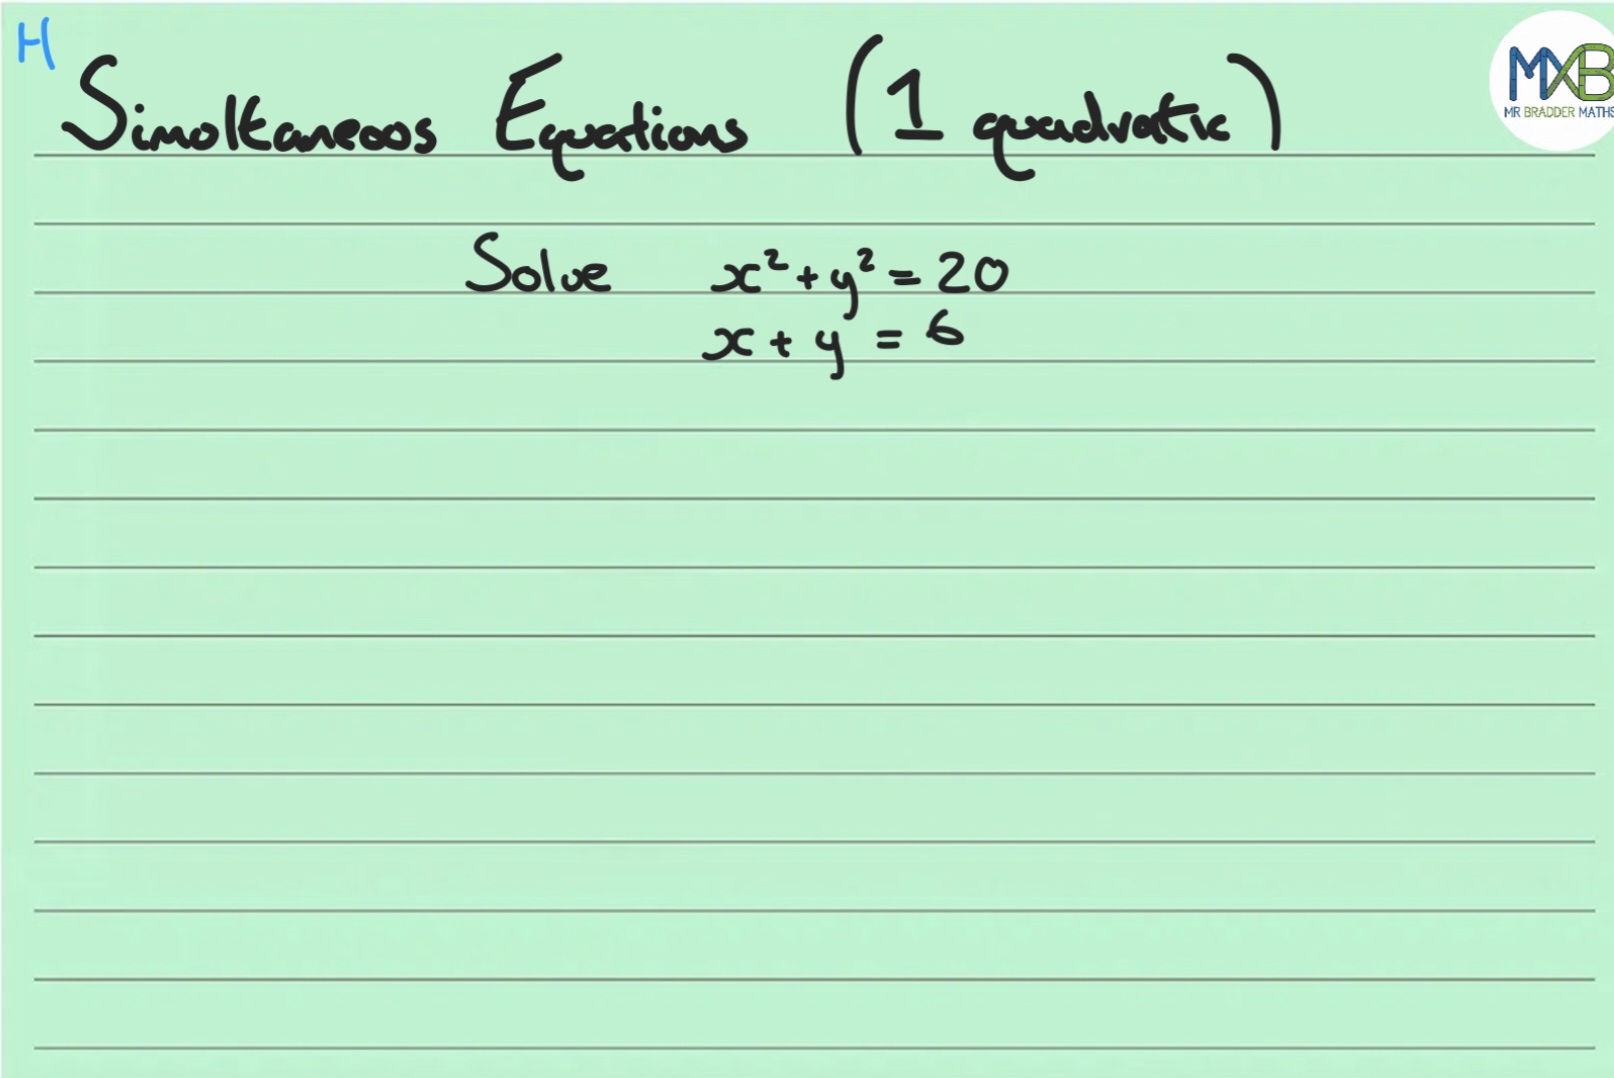 H
Simultaneous Equations (1 quadratic)
MXB
MR BRADDER MATHS
Solve x² + y² = 20
x + y = 6